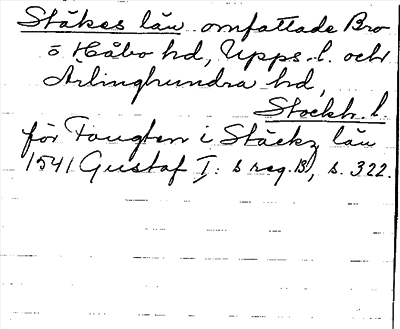 Stäkes län omfattade Bro
o Håbo hd, Upps. l. och
Ärlinghundra hd,
Stockh. l.
för Fougten i Stäckz län
1541 Gustaf I:s reg. 13, s. 322.